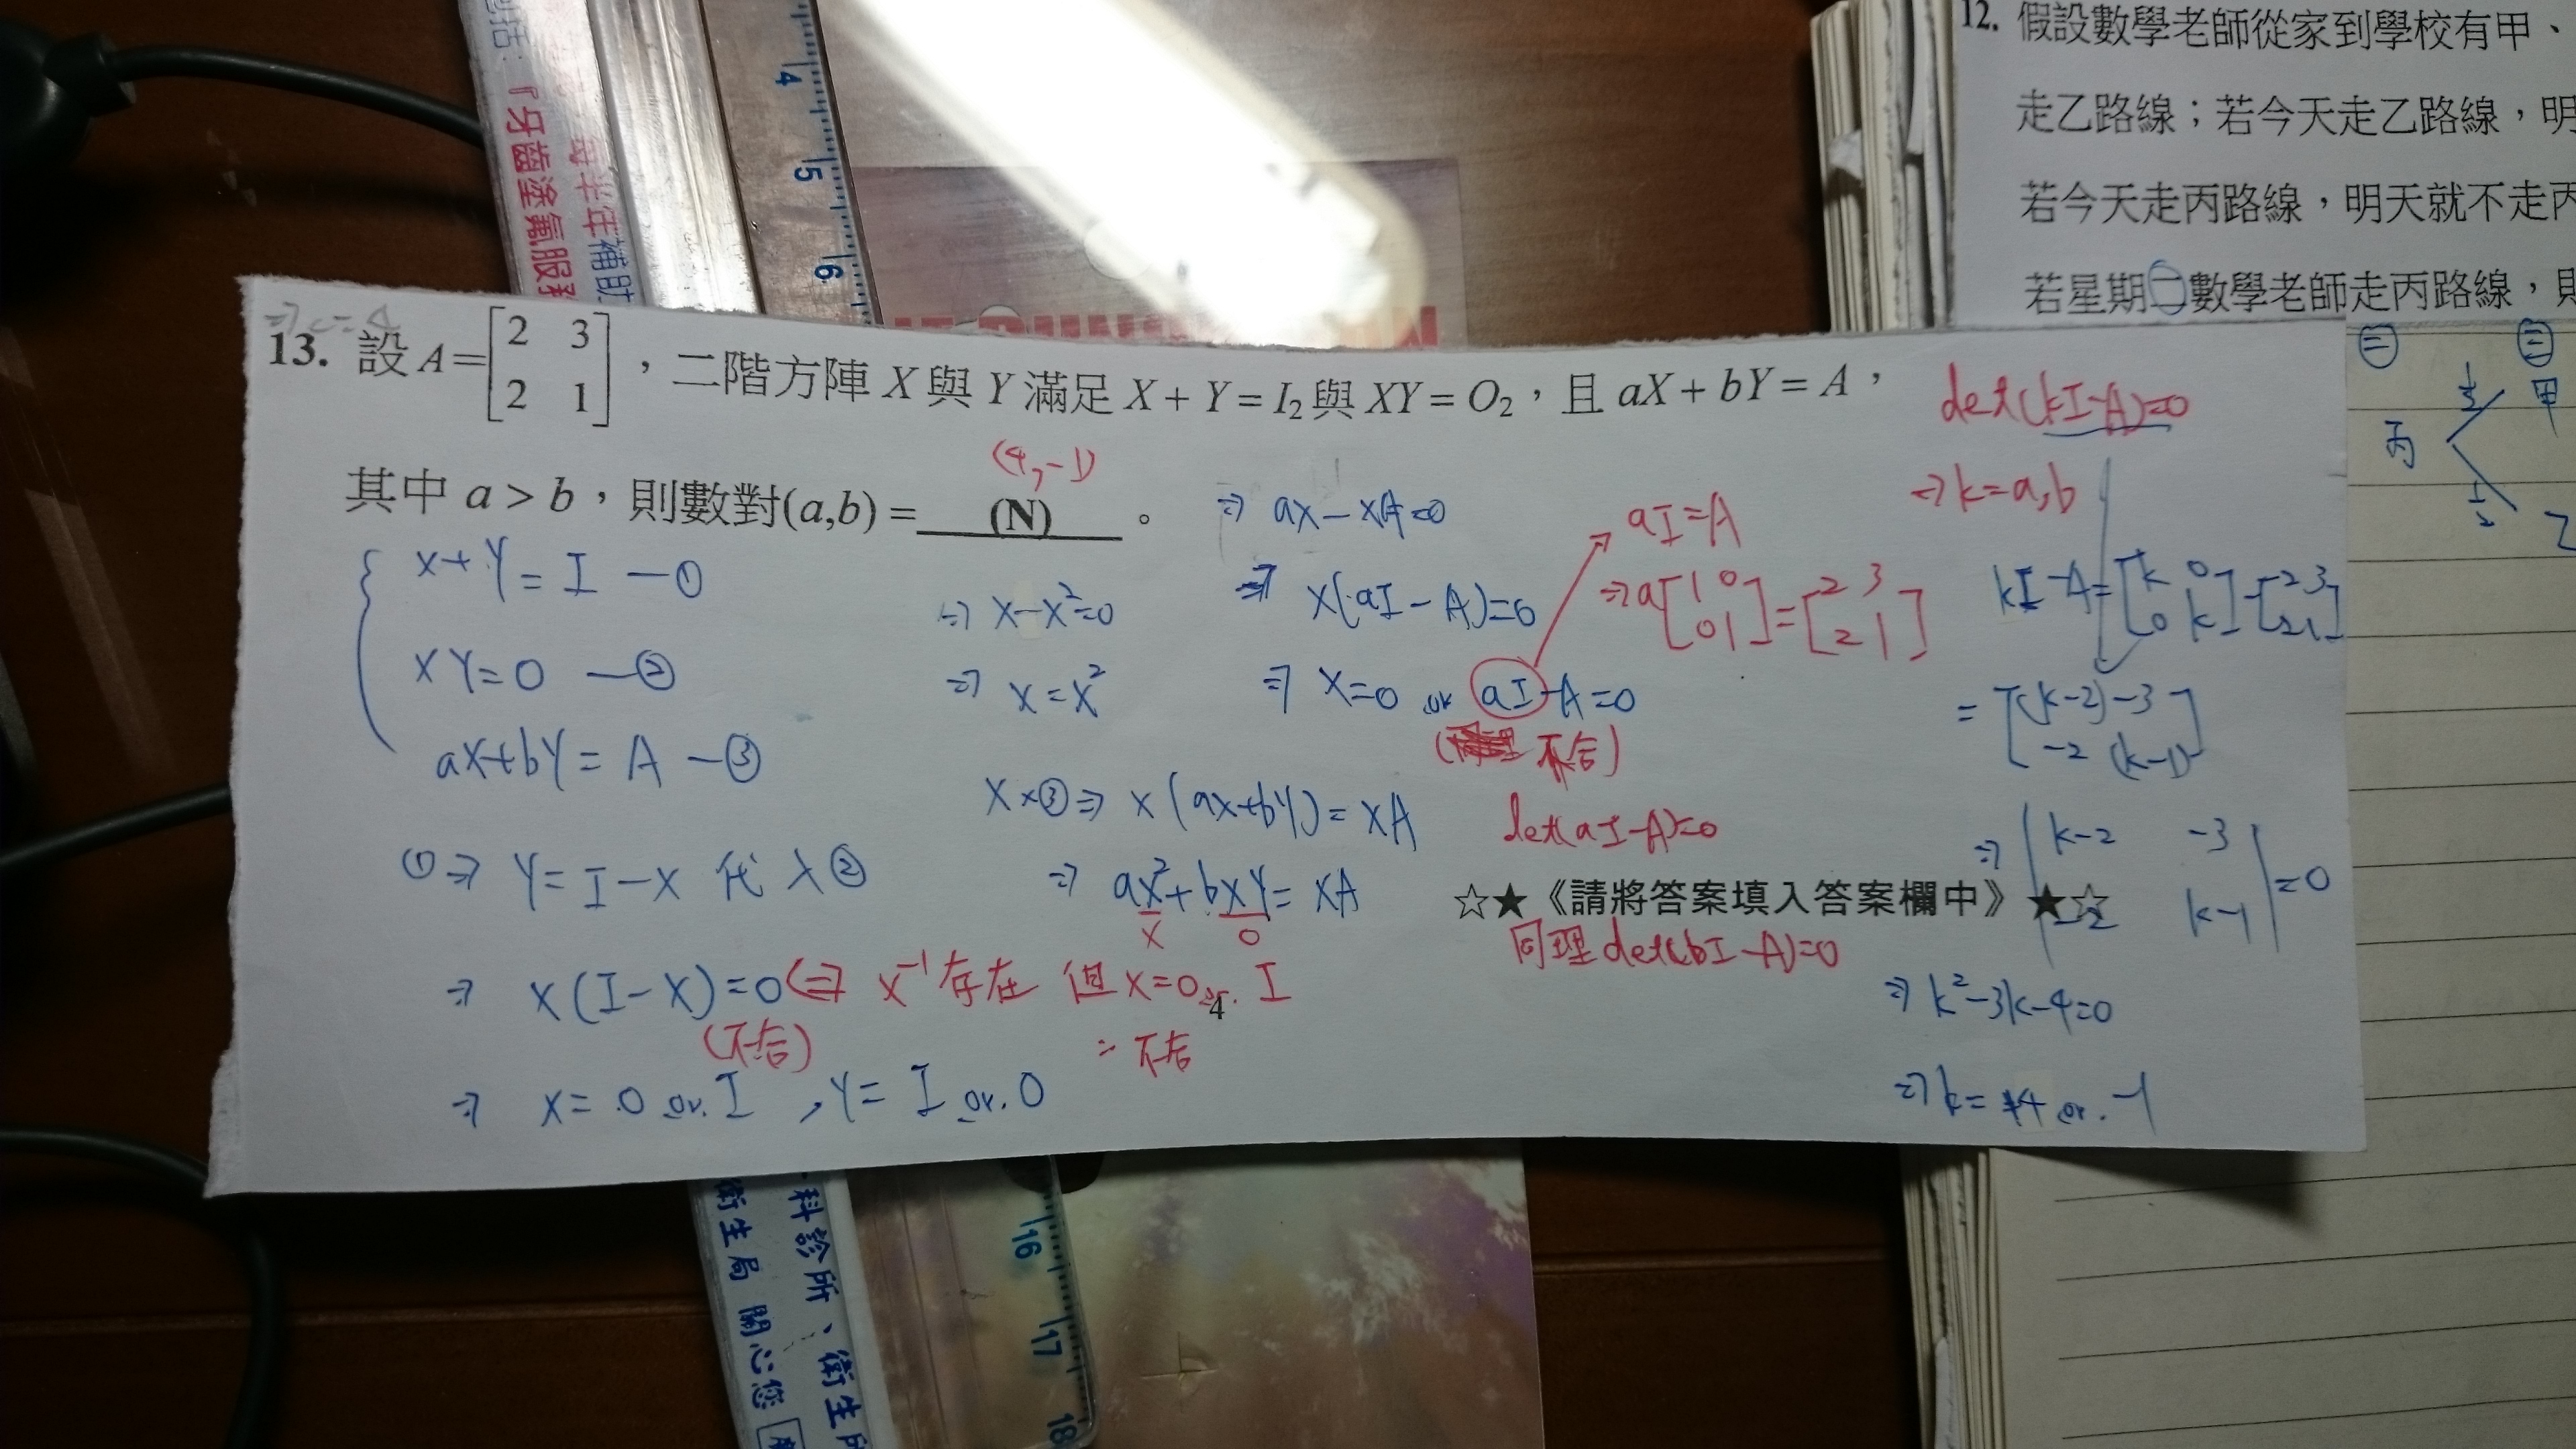 『牙齒塗氟服務
每半年補助
4
5
6
12. 假設數學老師從家到學校有甲、
走乙路線；若今天走乙路線，明
若今天走丙路線，明天就不走丙
若星期二數學老師走丙路線，則
㊁ ㊂
丙 1/2 甲
1/2 乙
13. 設 A=[2 3; 2 1]，二階方陣 X 與 Y 滿足 X + Y = I₂ 與 XY = O₂，且 aX + bY = A，
其中 a > b，則數對(a,b) = (N) 。
(4,-1)
X+Y=I —①
XY=0 —②
aX+bY=A —③
①⇒ Y=I-X 代入②
⇒ X(I-X)=0 (⇒ X⁻¹存在 但X=0 or. I
(不合)
∴不合
⇒ X=0 or. I , Y=I or. 0
⇒ X-X²=0
⇒ X=X²
X×③⇒ X(aX+bY)=XA
⇒ aX²+bXY=XA
X 0
⇒ aX-XA=0
⇒ X(aI-A)=0
⇒ X=0 or aI-A=0
(不合)
aI=A
⇒a[1 0; 0 1]=[2 3; 2 1]
det(aI-A)=0
☆★《請將答案填入答案欄中》★☆
同理 det(bI-A)=0
4
det(kI-A)=0
⇒k=a,b
kI-A=[k 0; 0 k]-[2 3; 2 1]
=[(k-2) -3; -2 (k-1)]
⇒ |k-2 -3; -2 k-1|=0
⇒ k²-3k-4=0
⇒ k=4 or. -1
科診所、衛生所
衛生局 關心您
16
17
18